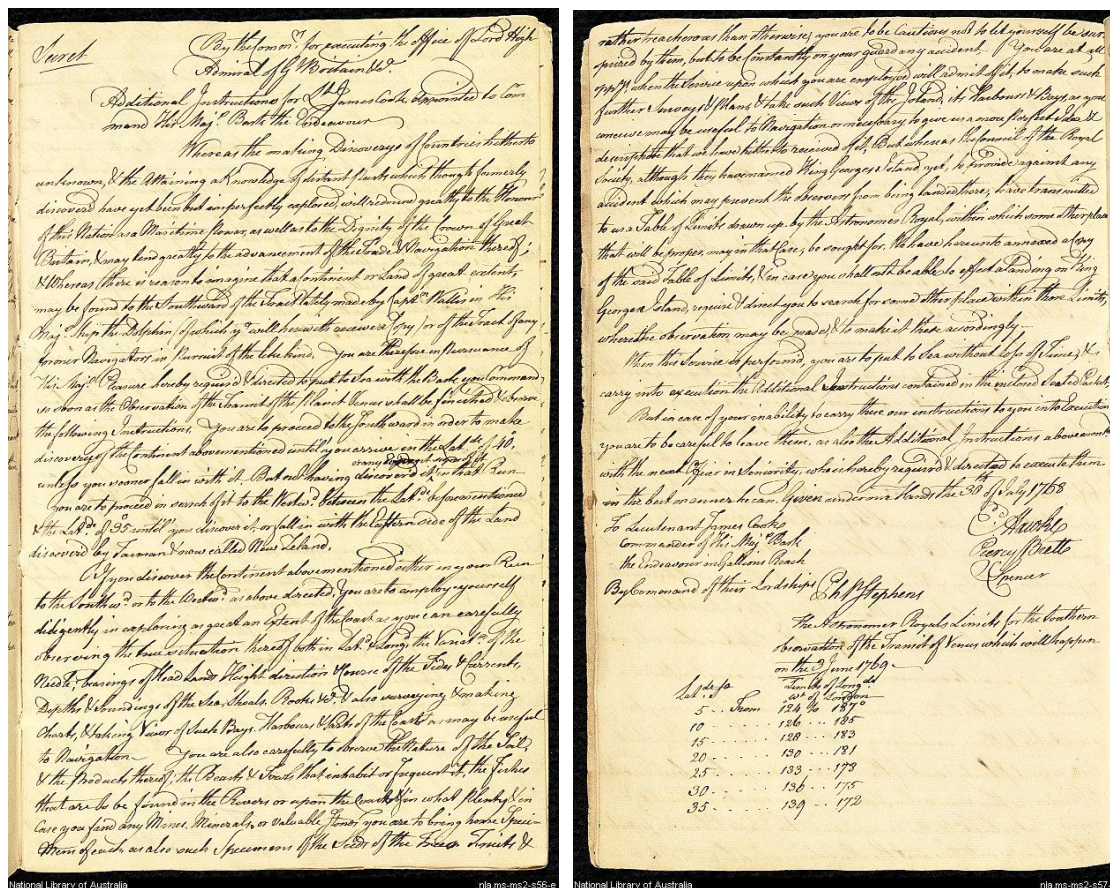 Secret
By the Comm.rs for executing the Office of Lord High
Admiral of Gt Britain &ca.
Additional Instructions for Lt. James Cook, appointed to Com
mand His Maj.s Bark the Endeavour
Whereas the making Discoverys of Countries hitherto
unknown, & the Attaining a Knowledge of distant Parts which though formerly
discover'd have yet been but imperfectly explored, will redound greatly to the Honour
of this Nation as a Maritime Power, as well as to the Dignity of the Crown of Great
Britain, & may tend greatly to the advancement of the Trade & Navigation thereof;
& Whereas there is reason to imagine that a Continent or Land of great extent,
may be found to the Southward of the Tract lately made by Capt.n Wallis in His
Maj.s Ship the Dolphin (of which you will herewith receive a Copy) or of the Tract of any
former Navigators in Pursuit of the like kind. You are therefore in Pursuance of
His Maj.s Pleasure hereby requir'd & directed to put to Sea with the Bark you Command
so soon as the Observation of the Transit of the Planet Venus shall be finished & observe
the following Instructions. You are to proceed to the Southward in order to make
discovery of the Continent abovementioned until you arrive in the Lat.de of 40,
unless you sooner fall in with it. But not having discover'd it in that Run
you are to proceed in search of it to the Westw.d between the Lat.de beforementioned
& the Lat.de of 35 until you discover it, or fall in with the Eastern side of the Land
discover'd by Tasman & now called New Zeland.
If you discover the Continent abovementioned either in your Run
to the Southw.d or to the Westw.d as above directed, You are to employ yourself
diligently in exploring as great an Extent of the Coast as you can carefully
observing the true situation thereof both in Lat.de & Long.de the Variat.n of the
Needle, bearings of Head Lands Height direction & Course of the Tides & Currents,
Depths & Soundings of the Sea, Shoals, Rocks &ca. & also surveying & making
Charts, & taking Views of such Bays, Harbours & Parts of the Coast as may be useful
to Navigation. You are also carefully to observe the Nature of the Soil,
& the Products thereof; the Beasts & Fowls that inhabit or frequent it, the Fishes
that are to be found in the Rivers or upon the Coast & in what Plenty & in
Case you find any Mines, Minerals or valuable Stones you are to bring home Speci
mens of each, as also such Specimens of the Seeds of the Trees Fruits &
National Library of Australia
nla.ms-ms2-s56-e
rather treacherous than otherwise, you are to be Cautious not to let yourself be sur
prized by them, but to be Constantly on your guard any accident. You are at all
opp.ys when the Service upon which you are employed will admit of it, to make such
further Surveys & Plans, & take such Views of the Island, its Harbours & Bays, as you
conceive may be useful to Navigation or necessary to give us a more Perfect Idea &
description than we have hitherto received of it. But whereas the Council of the Royal
Society, although they have named King Georges Island yet, to provide against any
accident which may prevent the observers from being landed there, have transmitted
to us a Table of Limits drawn up by the Astronomer Royal, within which some other place
that will be proper, may in that Case, be sought for, We have hereunto annexed a Copy
of the said Table of Limits, & in case you shall not be able to effect a landing on King
Georges Island, require & direct you to search for some other place within those Limits,
where the observation may be made, & to make it there accordingly.
When this Service is perform'd, you are to put to Sea without Loss of Time, &
carry into execution the Additional Instructions contained in the inclosed Sealed Packet
But in case of your inability to carry these our instructions to you into Execution
you are to be careful to leave them, as also the Additional Instructions abovement
with the next Officer in Seniority, who is hereby required & directed to execute them
in the best manner he can. Given under our Hands the 30th of July 1768
Ed. Hawke
To Lieutenant James Cook
Commander of His Maj.s Bark
Piercy Brett
the Endeavour in Gallions Reach
C Spencer
By Command of their Lordships
Ph.p Stephens
The Astronomer Royals Limits for the Southern
observation of the Transit of Venus which will happen
on the 3 June 1769
Lat.de So
Limits of Long.de
Wt. of London
5 .. From 124 to 187°
10 ....... 126 ... 185
15 ....... 128 ... 183
20 ....... 130 ... 181
25 ....... 133 ... 178
30 ....... 136 ... 175
35 ....... 139 ... 172
National Library of Australia
nla.ms-ms2-s57